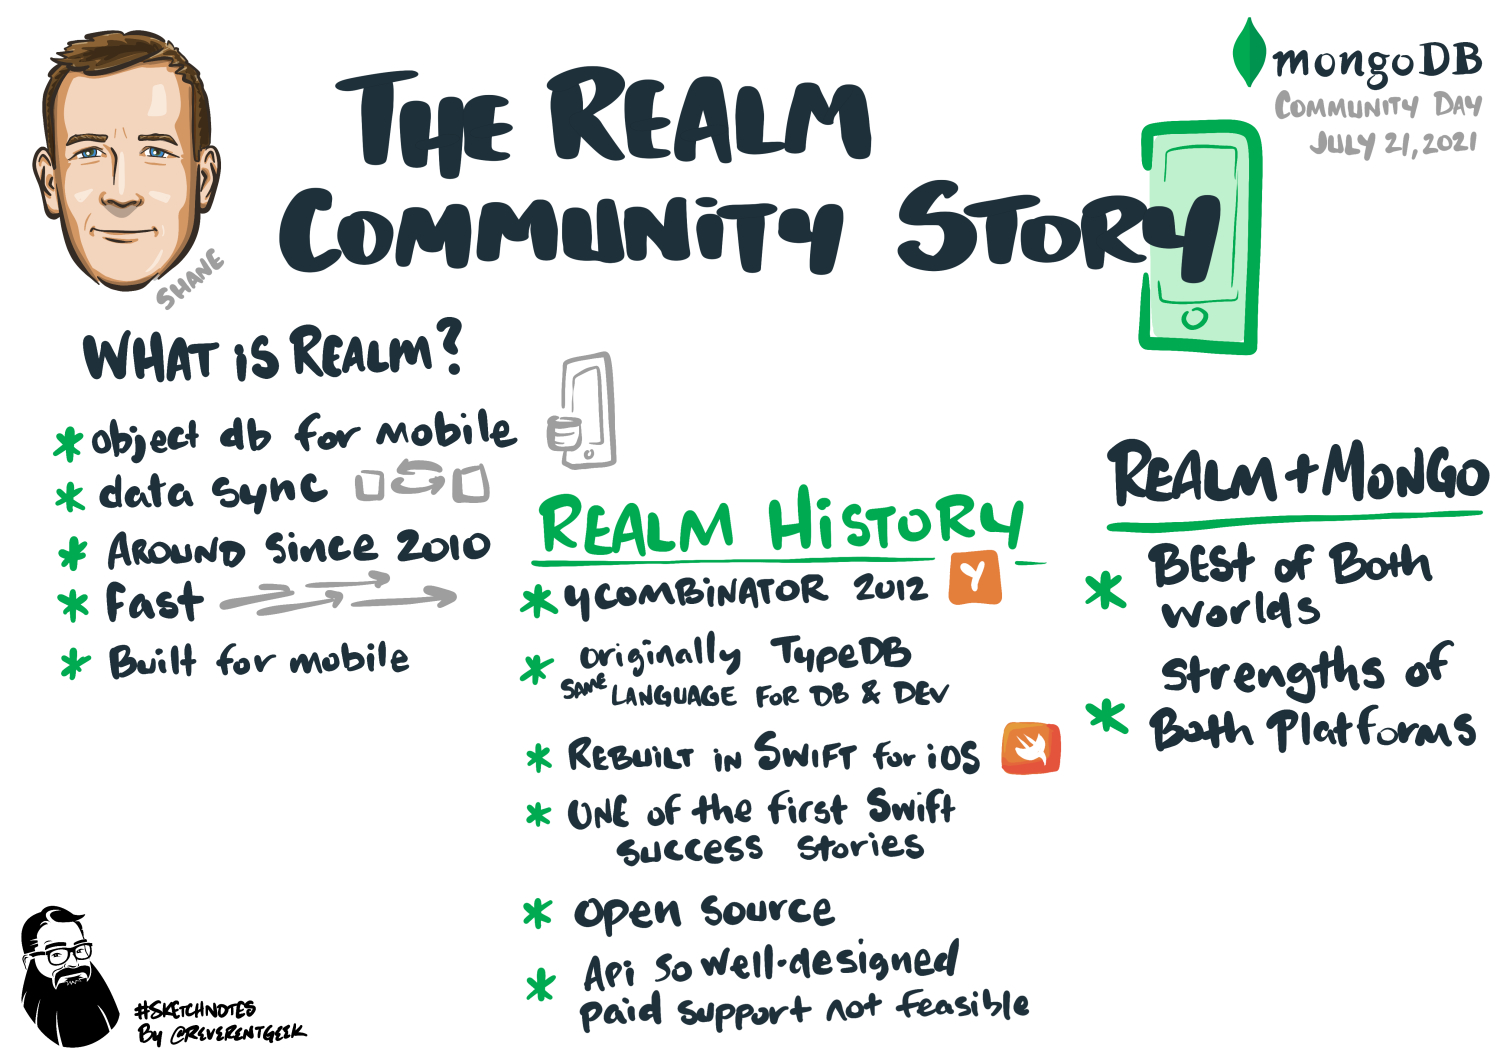 THE REALM
COMMUNITY STORY
mongoDB
COMMUNITY DAY
JULY 21, 2021
SHANE
WHAT iS REALM?
object db for mobile
data sync
AROUND Since 2010
Fast
Built for mobile
REALM HiSTORY
YCOMBiNATOR 2012
Y
originally TypeDB
SAME LANGUAGE FOR DB & DEV
REBUILT iN SWIFT for iOS
ONE of the first Swift
success stories
open source
Api so well-designed
paid support not feasible
REALM + MONGO
BEST of Both
worlds
strengths of
Both Platforms
#SKETCHNOTES
By @REVERENTGEEK